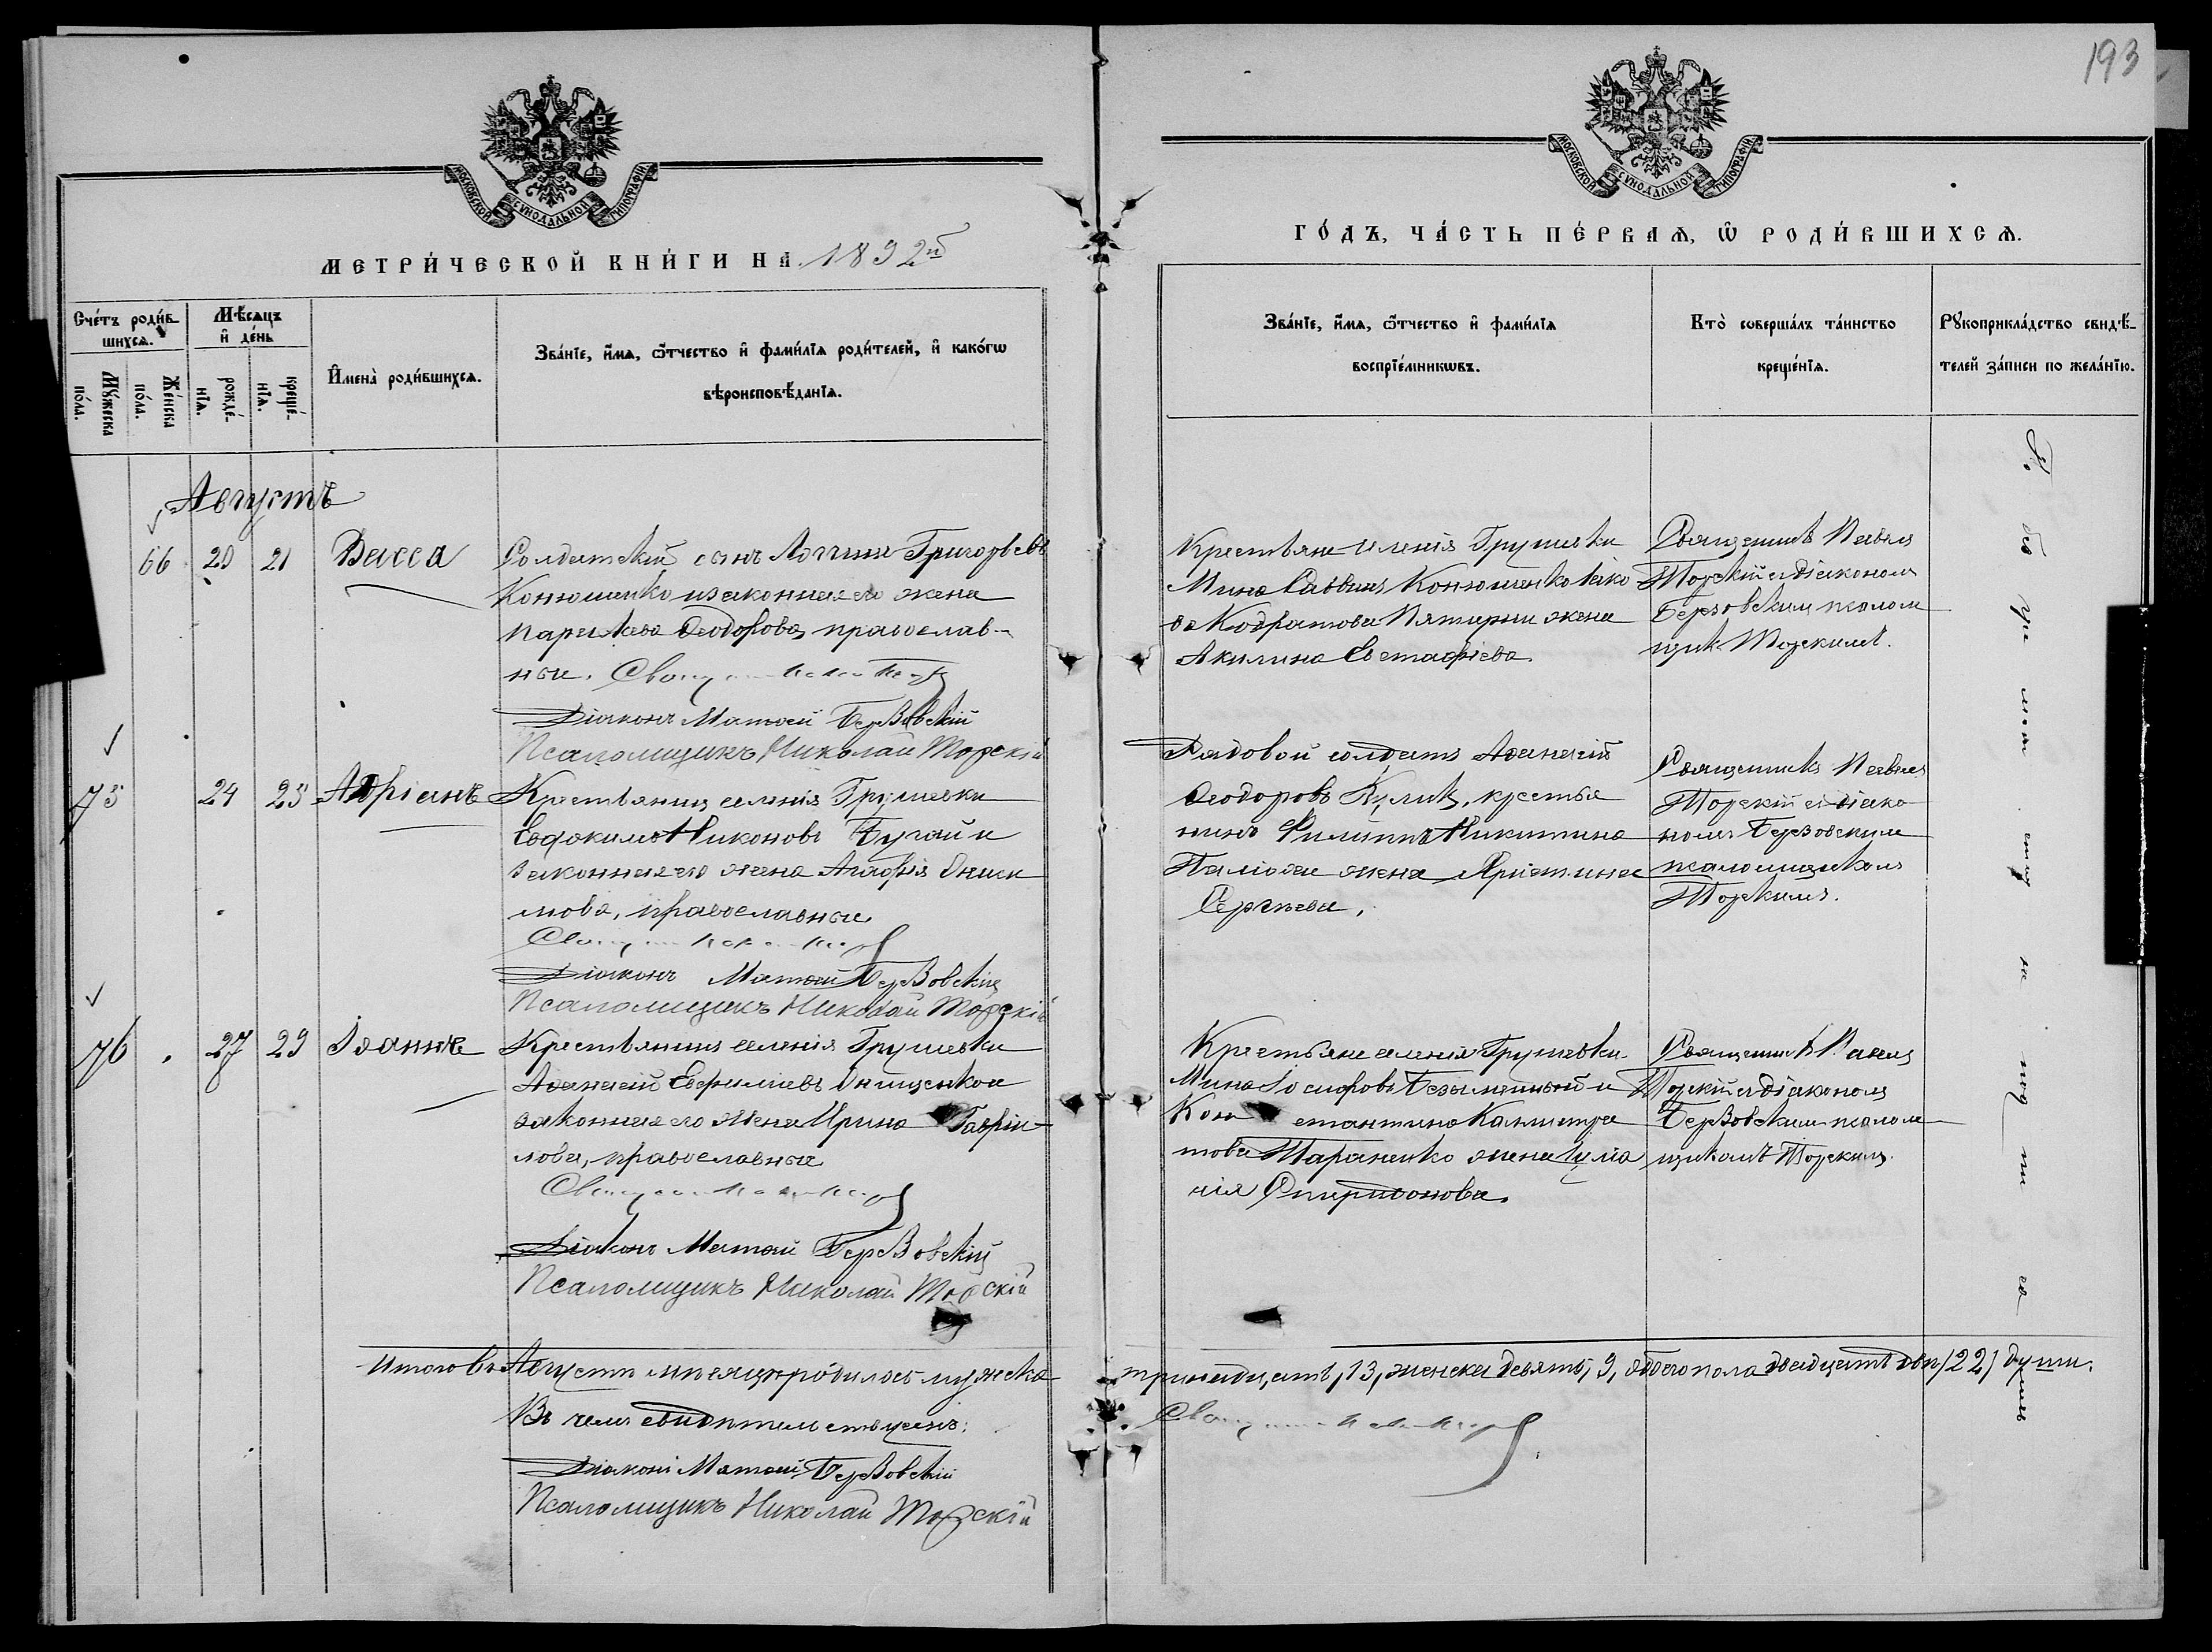 193
МОСКОВСКОЙ СѴНОДАЛЬНОЙ ТИПОГРАФІИ
МОСКОВСКОЙ СѴНОДАЛЬНОЙ ТИПОГРАФІИ
МЕТРИ́ЧЕСКОЙ КНИ́ГИ НА 1892й
ГО́ДЪ, ЧА́СТЬ ПЕ́РВАѦ, Ѡ РОДИ́ВШИХСѦ.
Сче́тъ роди́в-
шихсѧ.
Мѣ́сѧцъ
и҆ де́нь
Мꙋ́жеска
по́ла.
Же́нска
по́ла.
рожде́-
нїѧ.
креще́-
нїѧ.
И҆мена̀ роди́вшихсѧ.
Зва́нїе, и҆́мѧ, ѻ҆́тчество и҆ фами́лїѧ роди́телей, и҆ како́гѡ
вѣроисповѣ́данїѧ.
Зва́нїе, и҆́мѧ, ѻ҆́тчество и҆ фами́лїѧ
воспрїе́мникѡвъ.
Кто̀ соверша́лъ та́инство
креще́нїѧ.
Рꙋкоприкла́дство свидѣ́-
телей за́писи по жела́нїю.
Августъ
66 20 21 Васса
Солдатскій сынъ Логгинъ Григорьевъ
Конюшенко и законная его жена
Параскева Ѳеодорова, православ-
ные.
Діаконъ Матѳей Березовскій
Псаломщикъ Николай Торскій
Крестьяне селенія Грушевки
Мина Саввинъ Конюшенко Іако
ва Кодратова Пятирни жена
Акилина Евстафіева
Священникъ Павелъ
Торскій съ діакономъ
Березовскимъ псалом
щик Торскимъ.
75 24 25 Адріанъ
Крестьянинъ селенія Грушевки
Евдокимъ Никоновъ Бугай и
законная его жена Агафія Ониси
мова, православные
Діаконъ Матѳей Березовскій
Псаломщикъ Николай Торскій
Рядовой солдатъ Аѳанасій
Ѳеодоровъ Куликъ, крестья
нинъ Филиппа Никитина
жена Христина
Сергѣева.
Священникъ Павелъ
Торскій съ діако
номъ Березовскимъ
псаломщикомъ
Торскимъ.
76 27 29 Іоаннъ
Крестьянинъ селенія Грушевки
Аѳанасій Евфиміевъ Онищенко и
законная его жена Ирина Гаврии-
лова, православные
Діаконъ Матѳей Березовскій
Псаломщикъ Николай Торскій
Крестьяне селенія Грушевки
Мина Іосифовъ Безыменный и
Константина Калистра
това Тараненко жена Гума
нія Спиридонова.
Священникъ Павелъ
Торскій съ діакономъ
Березовскимъ псалом
щикомъ Торскимъ.
Итого въ Августѣ мѣсяцѣ родилось мужеска тринадцать, 13, женска девять, 9, обоего пола двадцать двѣ /22/ души.
Въ чемъ свидѣтельствуемъ:
Діаконъ Матѳей Березовскій
Псаломщикъ Николай Торскій